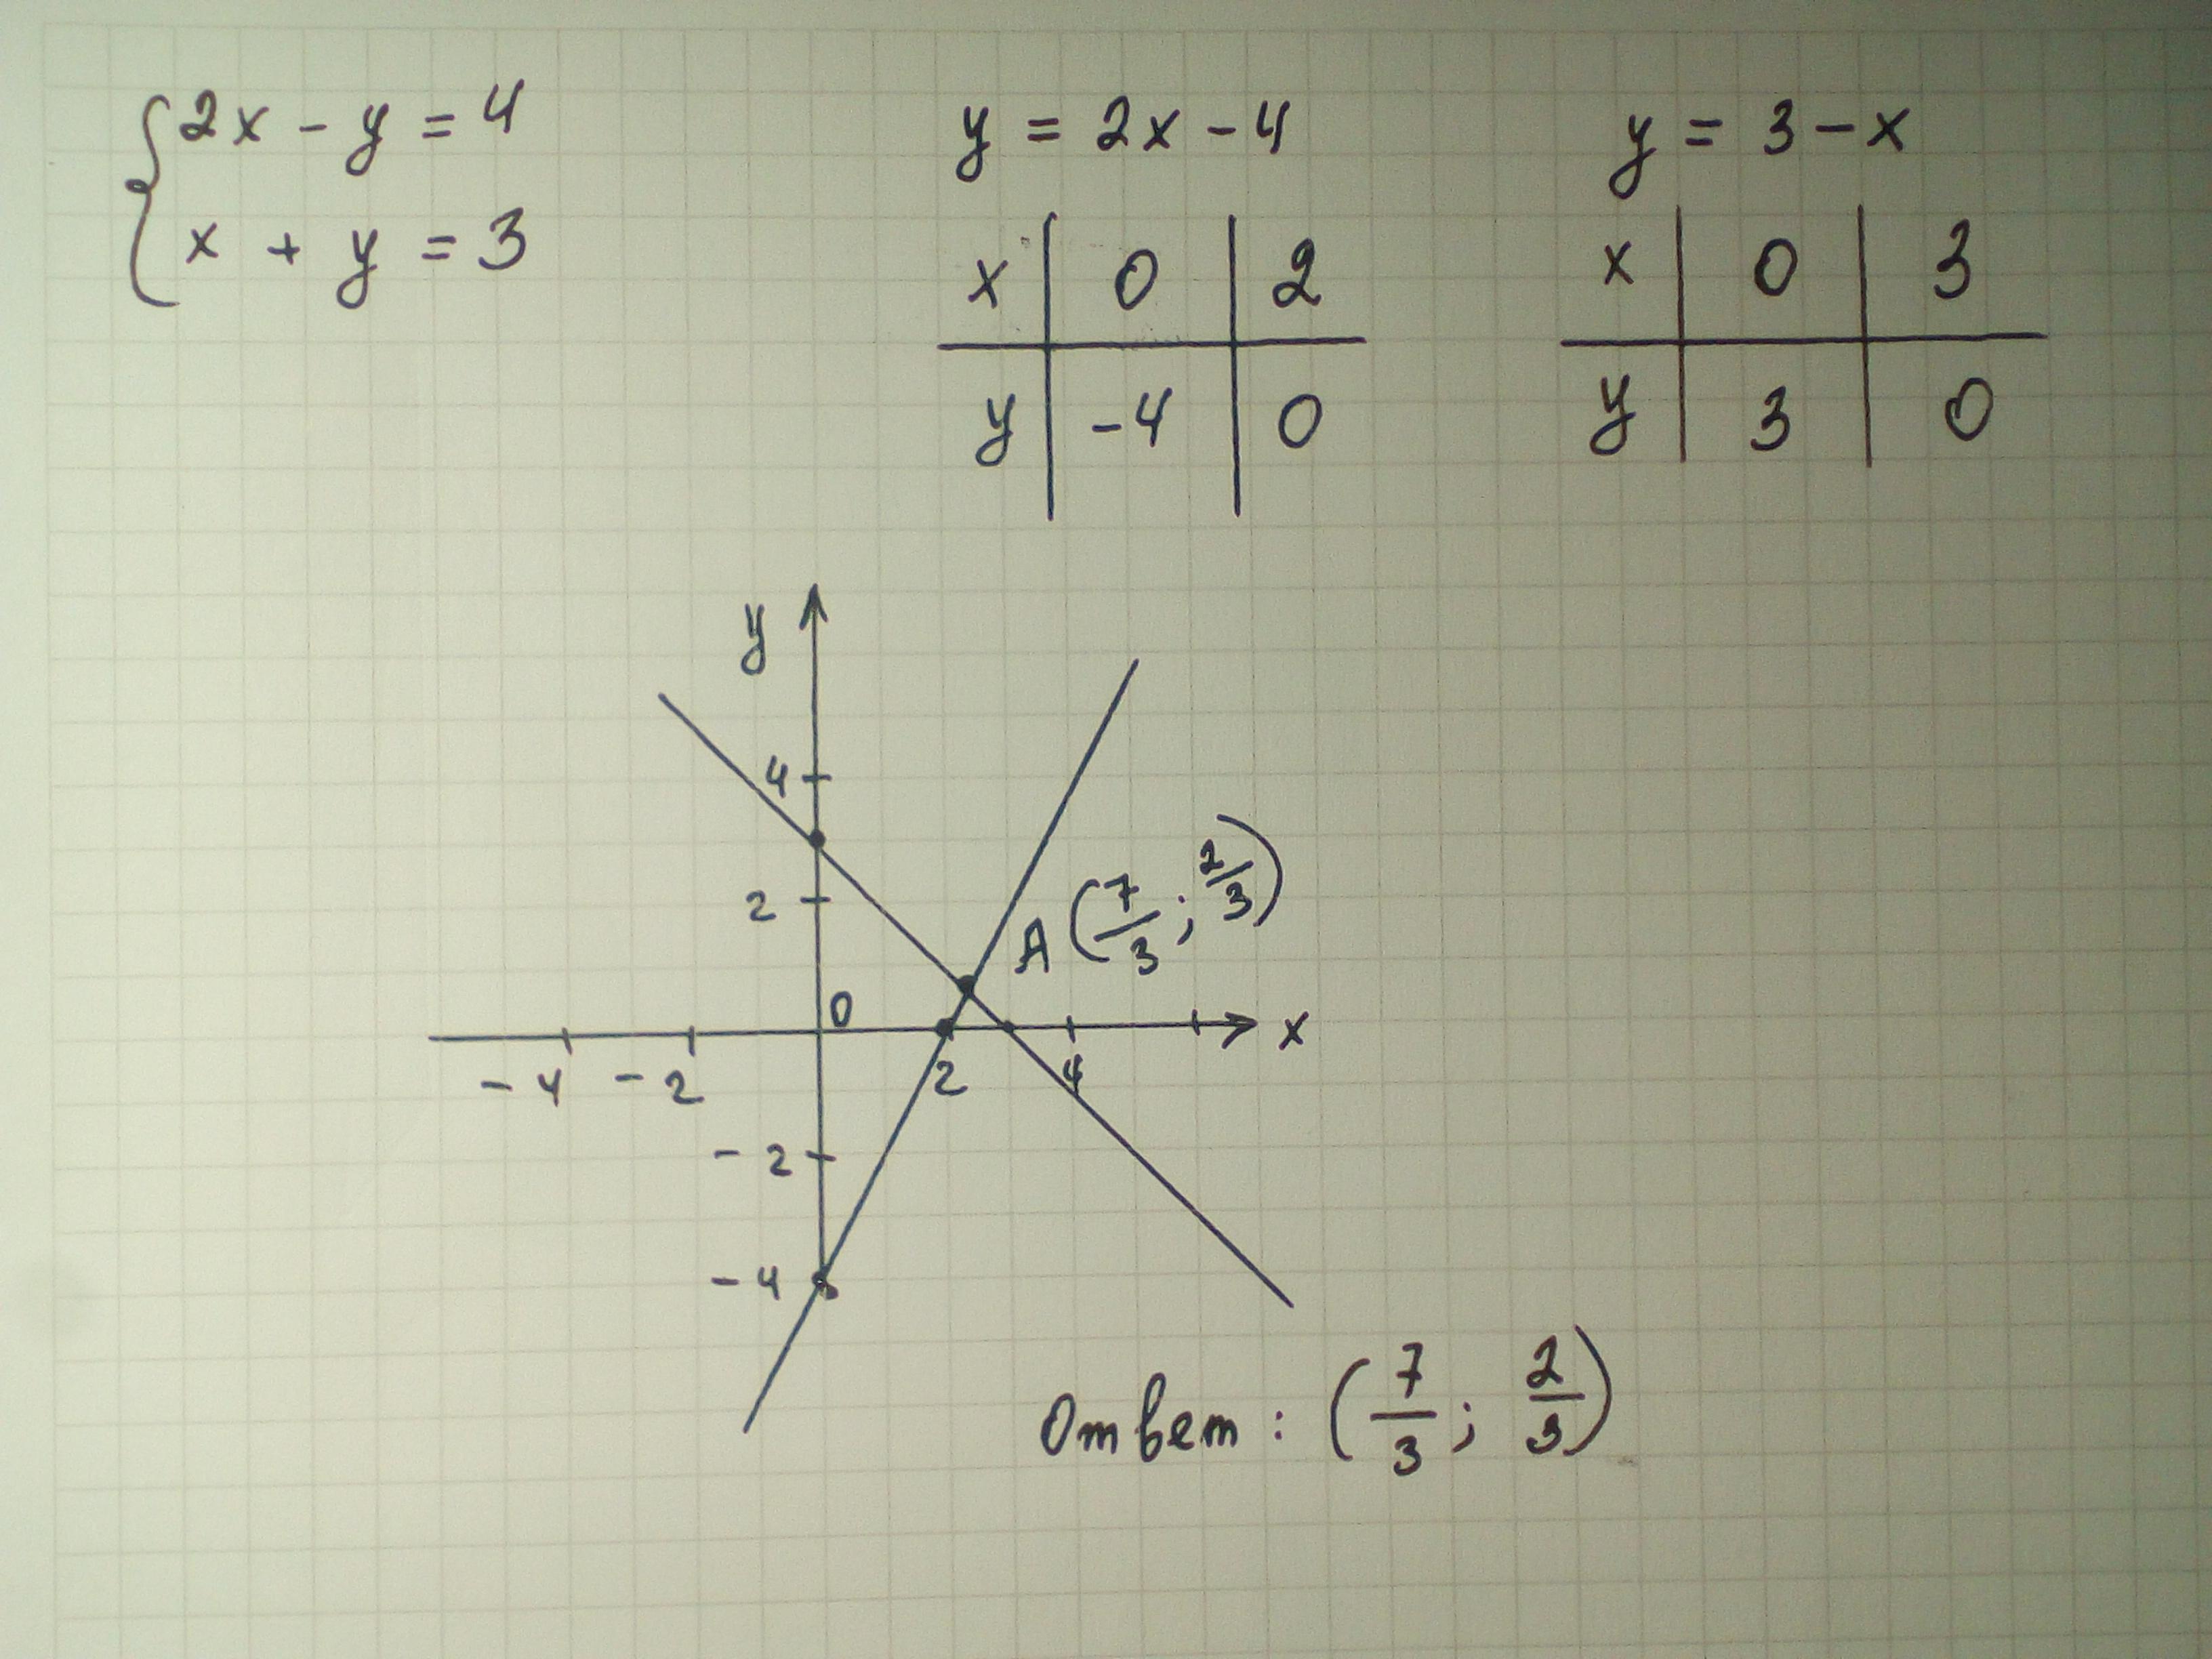 {2x - y = 4
x + y = 3
y = 2x - 4
x | 0 | 2
y | -4 | 0
y = 3 - x
x | 0 | 3
y | 3 | 0
y
4
2
A (7/3; 2/3)
0
x
-4 -2 2 4
-2
-4
Ответ: (7/3; 2/3)